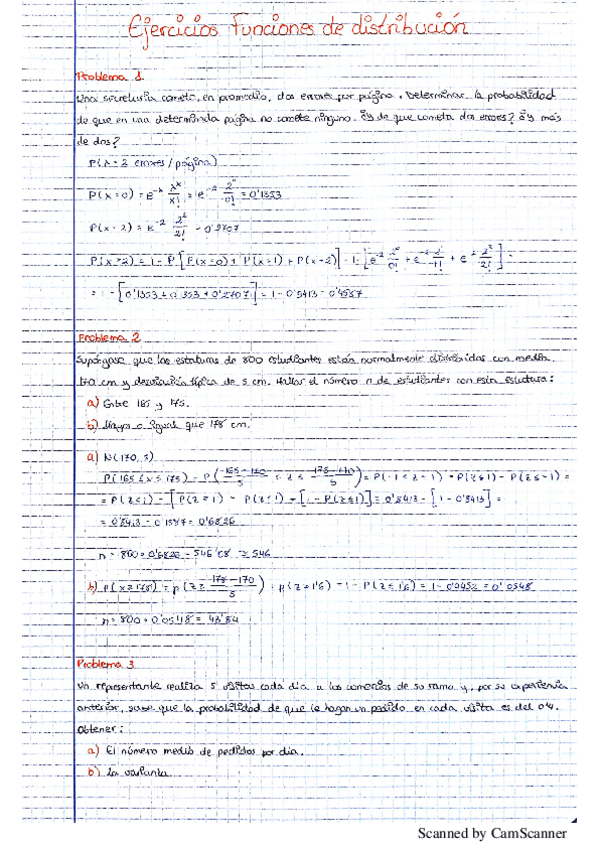 Ejercicios funciones de distribución
Problema 1
Una secretaria comete, en promedio, dos errores por página. Determinar la probabilidad
de que en una determinada página no comete ninguno. ¿Y de que cometa dos errores? ¿Y más
de dos?
P(λ = 2 errores / página)
P(x = 0) = e^-λ λ^x/x! = e^-2 2^0/0! = 0'1353
P(x = 2) = e^-2 2^2/2! = 0'2707
P(x > 2) = 1 - P[P(x=0) + P(x=1) + P(x=2)] = 1 - [e^-2 2^0/0! + e^-2 2^1/1! + e^-2 2^2/2!] =
= 1 - [0'1353 + 0'353 + 0'2707] = 1 - 0'5413 = 0'4587
Problema 2
Supóngase que las estaturas de 800 estudiantes están normalmente distribuidas con media
170 cm y desviación típica de 5 cm. Hallar el número n de estudiantes con esta estatura:
a) Entre 165 y 175.
b) Mayor o igual que 178 cm.
a) N(170, 5)
P(165 ≤ x ≤ 175) = P(165-170/5 ≤ z ≤ 175-170/5) = P(-1 ≤ z ≤ 1) = P(z ≤ 1) - P(z ≤ -1) =
= P(z ≤ 1) - [P(z ≥ 1) = P(z ≤ 1) - [1 - P(z ≤ 1)] = 0'8413 - [1 - 0'8413] =
= 0'8413 - 0'1587 = 0'6826
n = 800 · 0'6826 = 546'08 ≈ 546
b) P(x ≥ 178) = p(z ≥ 178-170/5) = p(z ≥ 1'6) = 1 - P(z ≤ 1'6) = 1 - 0'9452 = 0'0548
n = 800 · 0'0548 = 43'84
Problema 3
Un representante realiza 5 visitas cada día a los comercios de su ramo y, por su experiencia
anterior, sabe que la probabilidad de que le hagan un pedido en cada visita es del 0'4.
Obtener:
a) El número medio de pedidos por día.
b) La varianza
Scanned by CamScanner